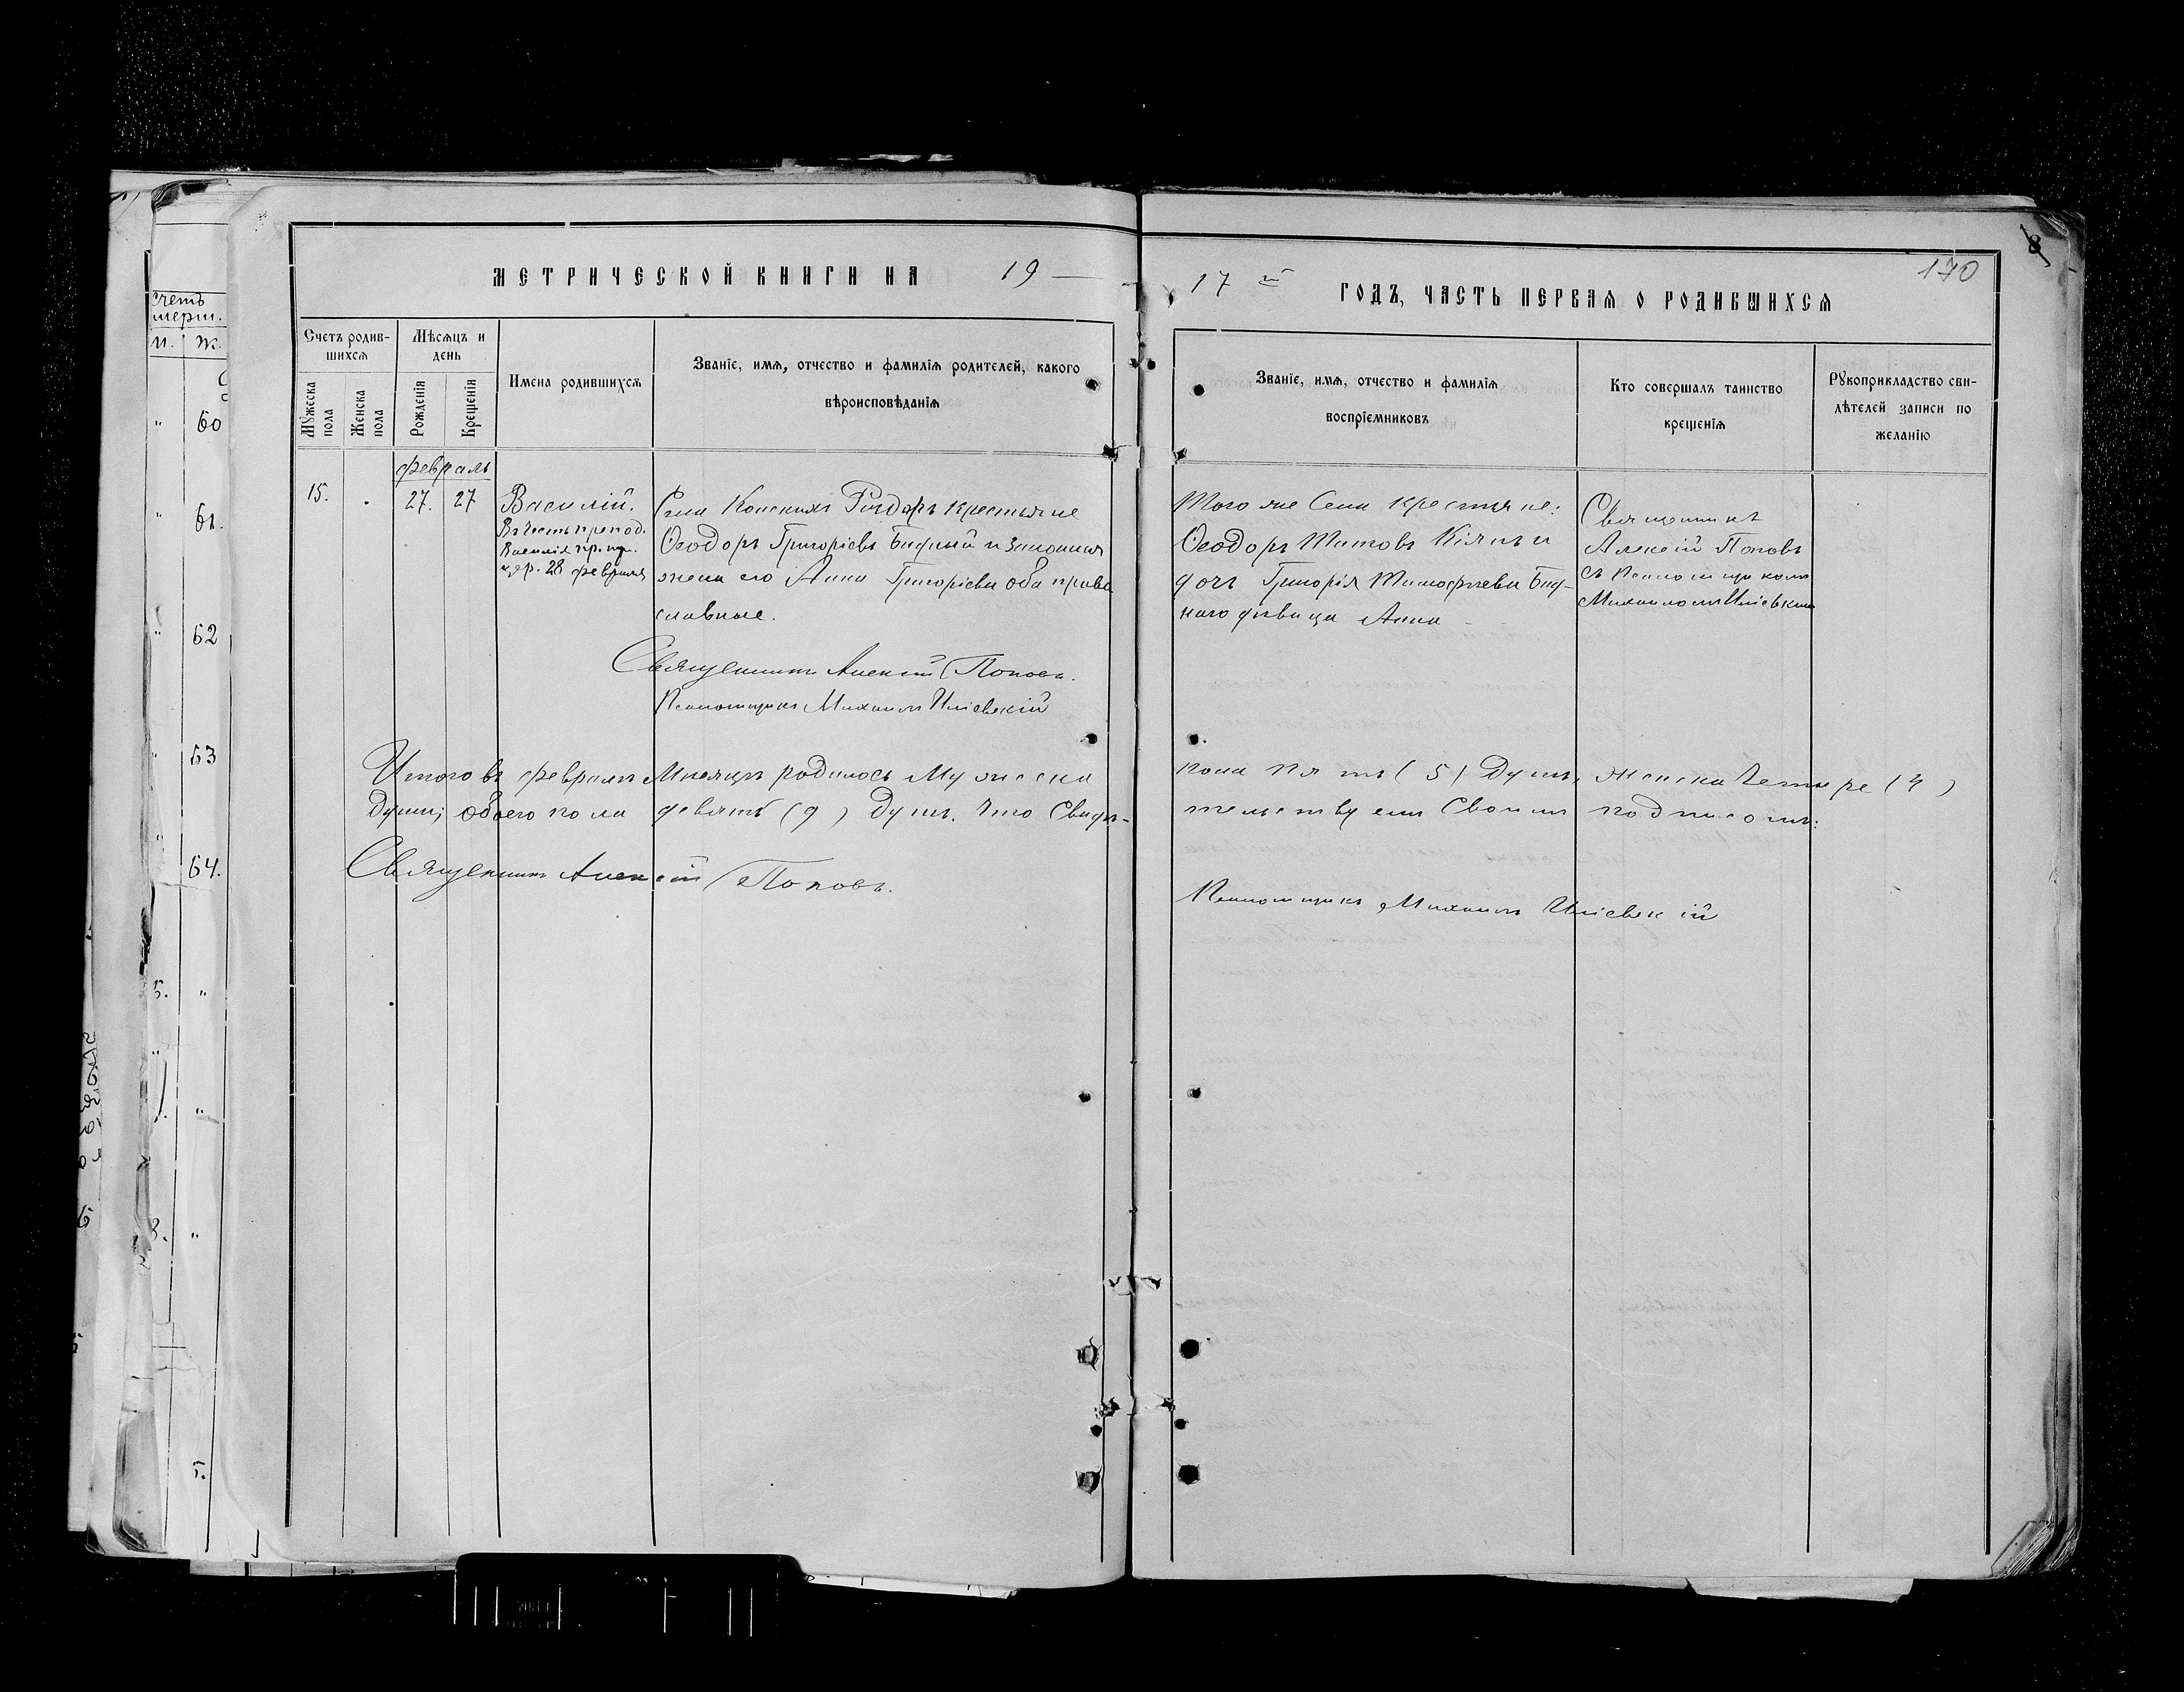 МЕТРИЧЕСКОЙ КНИГИ НА 19
17 й ГОДЪ, ЧАСТЬ ПЕРВАЯ О РОДИВШИХСЯ
170
8
Счетъ родив-
шихся
Мѣсяцъ и
день
Мужеска
пола
Женска
пола
Рожденія
Крещенія
Имена родившихся
Званіе, имя, отчество и фамилія родителей, какого
вѣроисповѣданія
Званіе, имя, отчество и фамилія
воспріемниковъ
Кто совершалъ таинство
крещенія
Рукоприкладство сви-
дѣтелей записи по
желанію
февраль
15.
27. 27
Василій.
Въ честь препод.
Василія
28 февраля
Села Конскихъ Роздоръ крестьяне
Ѳеодоръ Григорьевъ Бидный и законная
жена его Анна Григорьева оба право
славные.
Священникъ Алексій Поповъ.
Псаломщикъ Михаилъ Иліевскій
Того же Села крестьяне:
Ѳеодоръ Титовъ Кіянъ и
дочь Григорія Тимофѣева Бид-
наго дѣвица Анна
Священникъ
Алексій Поповъ
съ Псаломщикомъ
Михаиломъ Иліевскимъ
Итого въ февралѣ Мѣсяцѣ родилось Мужеска
пола пять (5) Душъ, женска Четыре (4)
Души; обоего пола девять (9) Душъ. Что Свидѣ-
тельствуемъ Своимъ подписомъ:
Священникъ Алексій Поповъ.
Псаломщикъ Михаилъ Иліевскій
Счетъ
умерш.
м. ж.
60
61.
62
63
64.
5.
3.